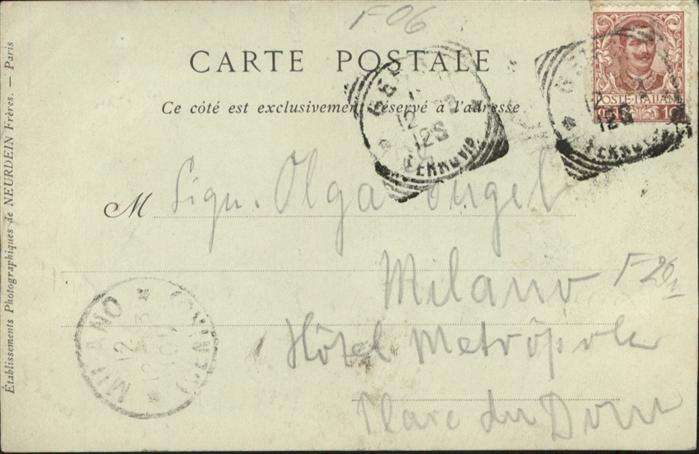 F06
CARTE POSTALE
Ce côté est exclusivement réservé à l'adresse
POSTE ITALIANE
12
12S
FERROVIA
12
12S
FERROVIA
M Sign. Olga
Milano
F 26
Hôtel Métropole
Place du Dom
MILANO
12
Établissements Photographiques de NEURDEIN Frères. — Paris